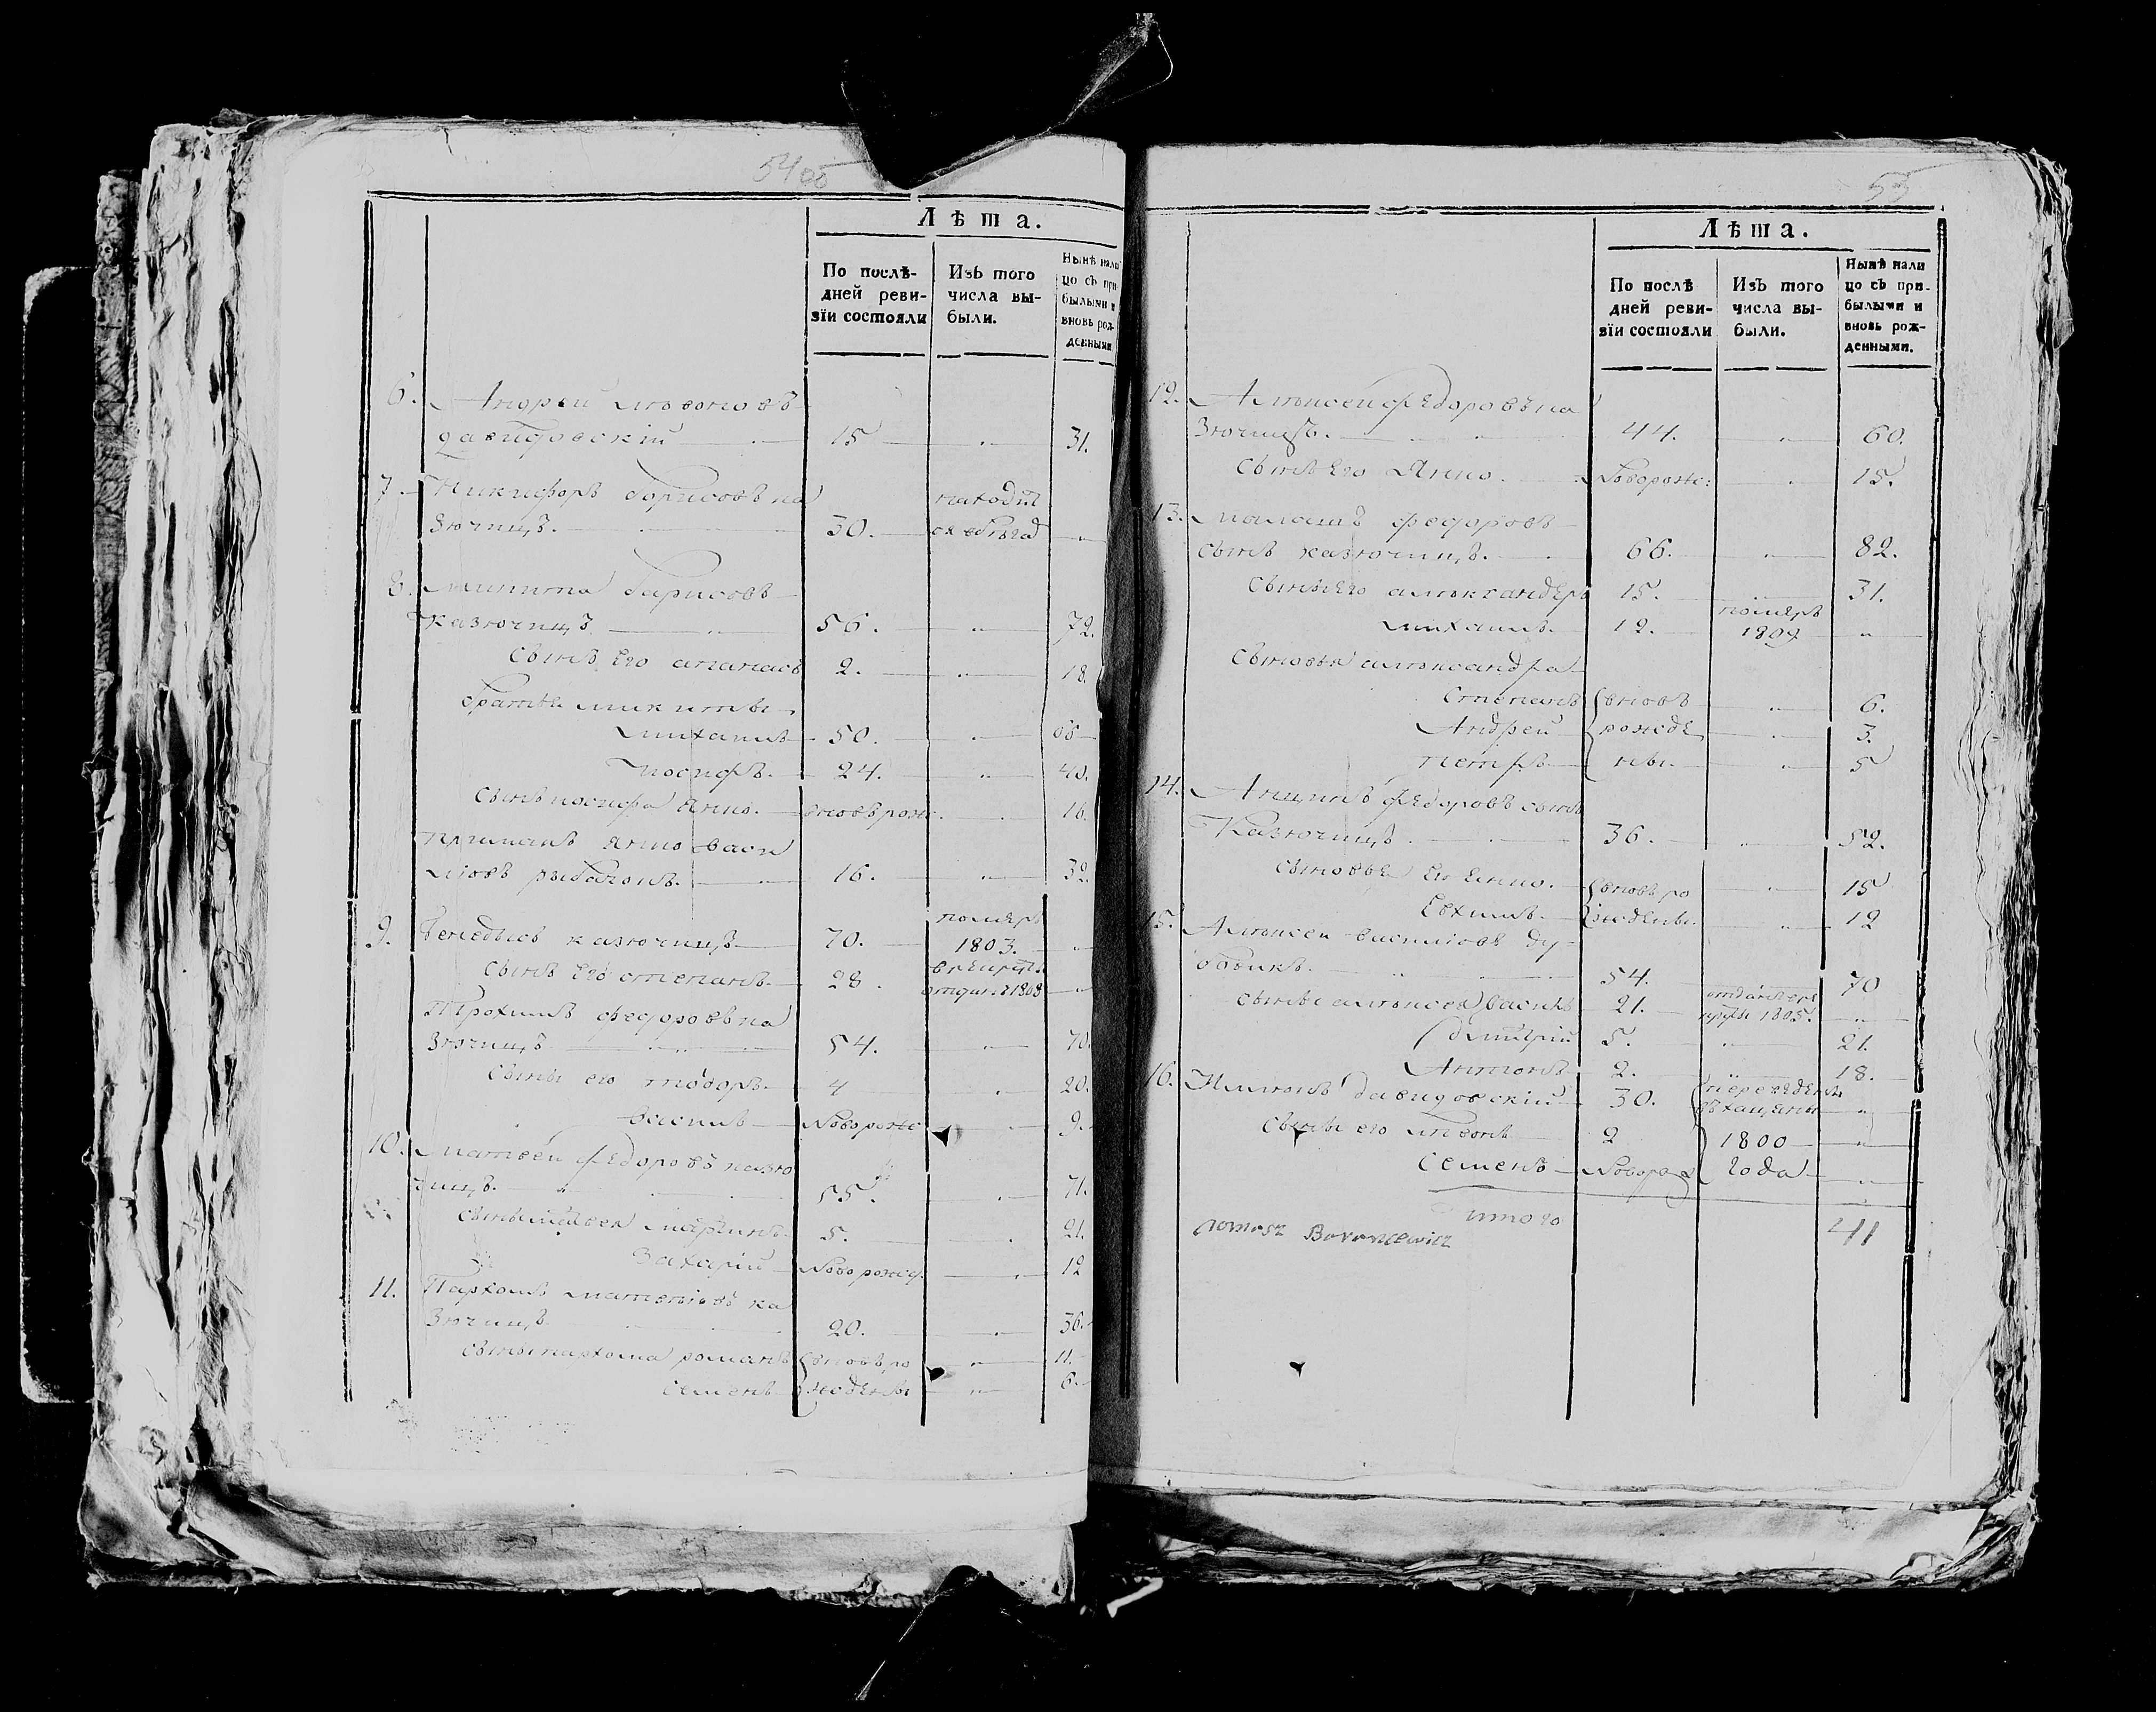 54об
Лѣта.
По послѣ-
дней реви-
зїи состояли
Изъ того
числа вы-
были.
Нынѣ нали
цо съ при
былыми и
вновь рож-
денными
6. Андрей
давидовскій 15 „ 31.
7. Никифоръ борисовъ ка
зючицъ. 30. находит
ся въ бѣгах „
8. Микита барисовъ
казючицъ 56. „ 72.
Сынъ Его апанасъ 2. „ 18.
братья микиты
михаилъ 50. „ 66
иосифъ. 24. „ 40.
Сынъ иосифа янко. вновь рож. „ 16.
приимакъ янко васи
льовъ 16. „ 32.
9. Бенедысь казючицъ 70. помѣръ
1803. „
Сынъ Его степанъ. 28. в рекруты
отдан в 1808 „
Трохимъ федоровъ ка
зючицъ 54. „ 70.
Сыны его тодоръ. 4 „ 20.
василь Новорож „ 9.
10. Матвей федоровъ казю
чицъ. 55. „ 71.
Сыны матвея мартинъ. 5. „ 21.
Захарій Новорожд. „ 12
11. Пархомъ матвеювъ ка
зючицъ 20. „ 36.
Сыны пархома романъ вновь ро „ 11.
семенъ ждены „ 6.
55
Лѣта.
По послѣ
дней реви-
зїи состояли
Изъ того
числа вы-
были.
Нынѣ нали
цо съ при-
былыми и
вновь рож-
денными.
12. Алѣксей федоровъ ка
зючицъ. 44. „ 60.
Сынъ Его Янко. Новорожд: „ 15.
13. федоровъ
сынъ казючицъ. 66. „ 82.
Сыны Его алѣксандеръ 15. „ 31.
михаилъ. 12. помѣръ
1809 „
Сыновья алѣксандра
Степанъ вновь „ 6.
Андрей рожде „ 3.
петръ ны. „ 5
14. федоровъ сынъ
Казючицъ 36. „ 52.
Сыновья Его янко. вновь ро „ 15
Евхимъ. ждены. „ 12
15. Алѣксей васильовъ ду-
бовикъ. 54. 70
Сыны алѣксея василь 21. отданъ в ре
круты 1805. „
дмитрій 5. „ 21.
Антонъ 2. „ 18.
16. давидовскій 30. переведены
„
Сыны его 2 1800 „
Семенъ Новорож года „
итого 41
Tomasz Boroncewicz